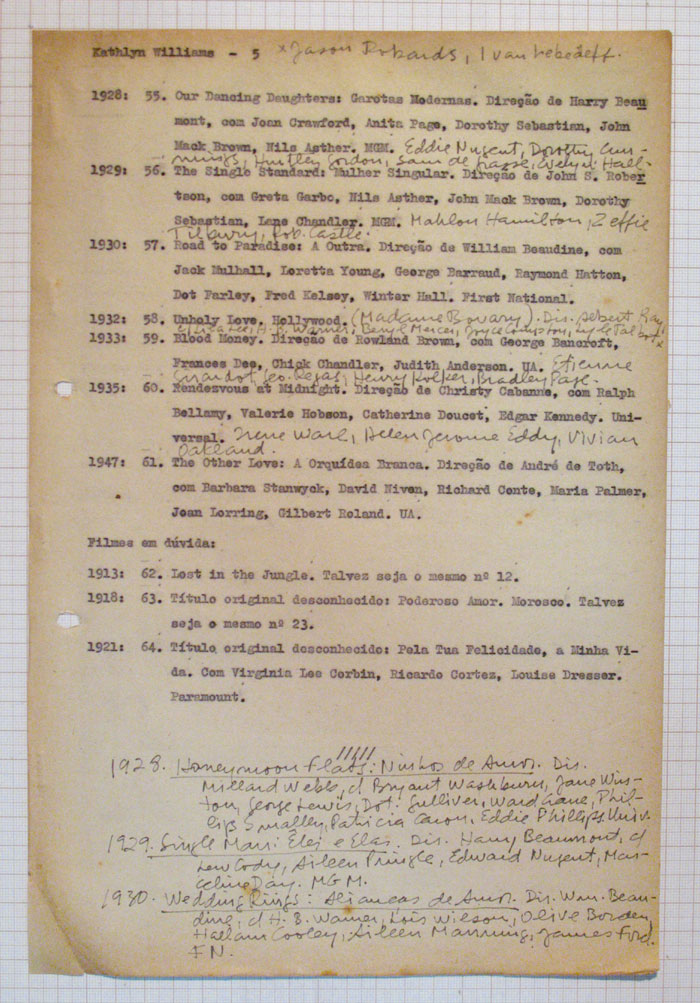 Kathlyn Williams - 5 x Jason Robards, Ivan Lebedeff.
1928: 55. Our Dancing Daughters: Garotas Modernas. Direção de Harry Beau
mont, com Joan Crawford, Anita Page, Dorothy Sebastian, John
Mack Brown, Nils Asther. MGM. Eddie Nugent, Dorothy Cum-
mings, Huntley Gordon, Sam de Grasse, Evelyn Hall.
1929: 56. The Single Standard: Mulher Singular. Direção de John S. Rober
tson, com Greta Garbo, Nils Asther, John Mack Brown, Dorothy
Sebastian, Lane Chandler. MGM. Mahlon Hamilton, Zeffie
Tilbury, Rob. Castle.
1930: 57. Road to Paradise: A Outra. Direção de William Beaudine, com
Jack Mulhall, Loretta Young, George Barraud, Raymond Hatton,
Dot Farley, Fred Kelsey, Winter Hall. First National.
1932: 58. Unholy Love. Hollywood. (Madame Bovary). Dir. Albert Ray,
Lila Lee, H. B. Warner, Beryl Mercer, Joyce Compton, Lyle Talbot x
1933: 59. Blood Money. Direção de Rowland Brown, com George Bancroft,
Frances Dee, Chick Chandler, Judith Anderson. UA. Etienne
Girardot, Geo. Regas, Henry Kolker, Bradley Page.
1935: 60. Rendezvous at Midnight. Direção de Christy Cabanne, com Ralph
Bellamy, Valerie Hobson, Catherine Doucet, Edgar Kennedy. Uni-
versal. Irene Ware, Helen Jerome Eddy, Vivian
Oakland.
1947: 61. The Other Love: A Orquídea Branca. Direção de André de Toth,
com Barbara Stanwyck, David Niven, Richard Conte, Maria Palmer,
Joan Lorring, Gilbert Roland. UA.
Filmes em dúvida:
1913: 62. Lost in the Jungle. Talvez seja o mesmo nº 12.
1918: 63. Título original desconhecido: Poderoso Amor. Morosco. Talvez
seja o mesmo nº 23.
1921: 64. Título original desconhecido: Pela Tua Felicidade, a Minha Vi-
da. Com Virginia Lee Corbin, Ricardo Cortez, Louise Dresser.
Paramount.
1928. Honeymoon Flats: Ninhos de Amor. Dir.
Millard Webb, c/ Bryant Washburn, Jane Wins-
ton, George Lewis, Dot. Gulliver, Ward Crane, Phil-
lips Smalley, Patricia Caron, Eddie Phillips Univ.
1929. Single Man: Elei e Elas. Dir. Harry Beaumont, c/
Lew Cody, Aileen Pringle, Edward Nugent, Mar-
celine Day. MGM.
1930. Wedding Rings: Alianças de Amor. Dir. Wm. Beau-
dine, c/ H. B. Warner, Lois Wilson, Olive Borden,
Hallam Cooley, Aileen Manning, James Ford.
FN.